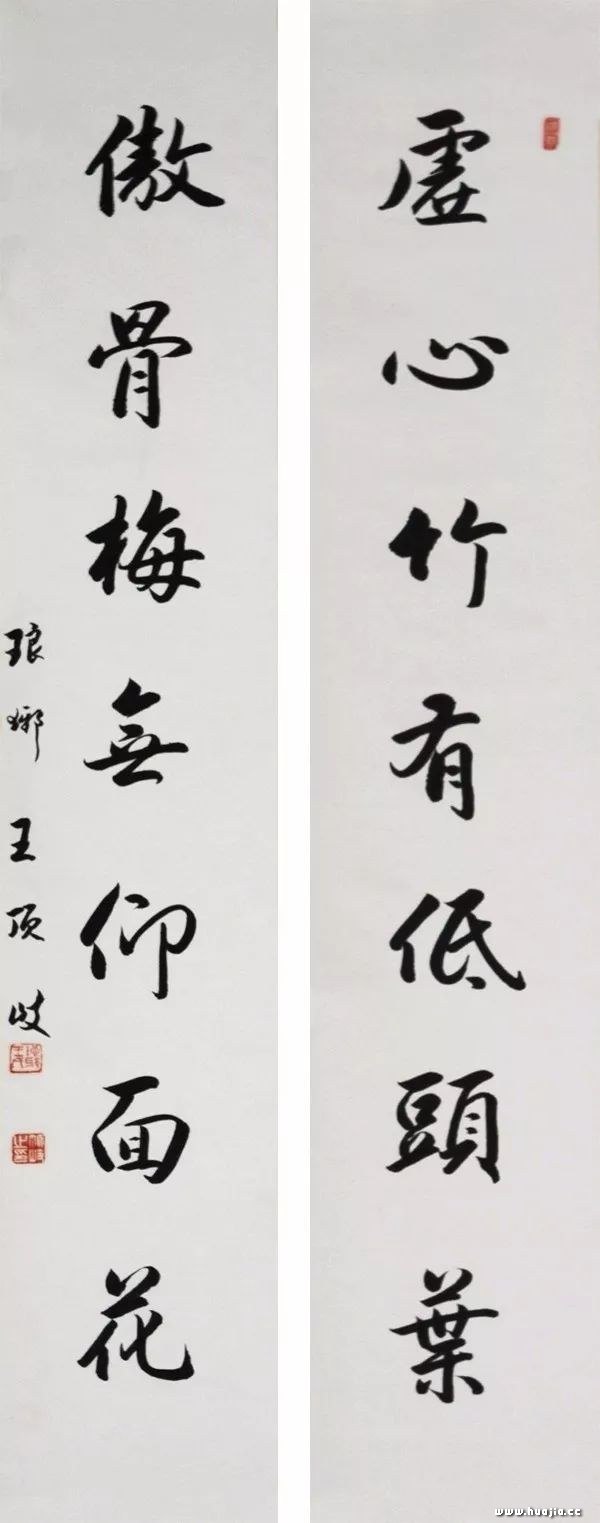 虛心竹有低頭葉
傲骨梅無仰面花
琅琊王頂岐
www.huajia.cc